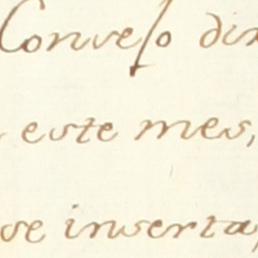 Conveſo
este mes,
se inserta,